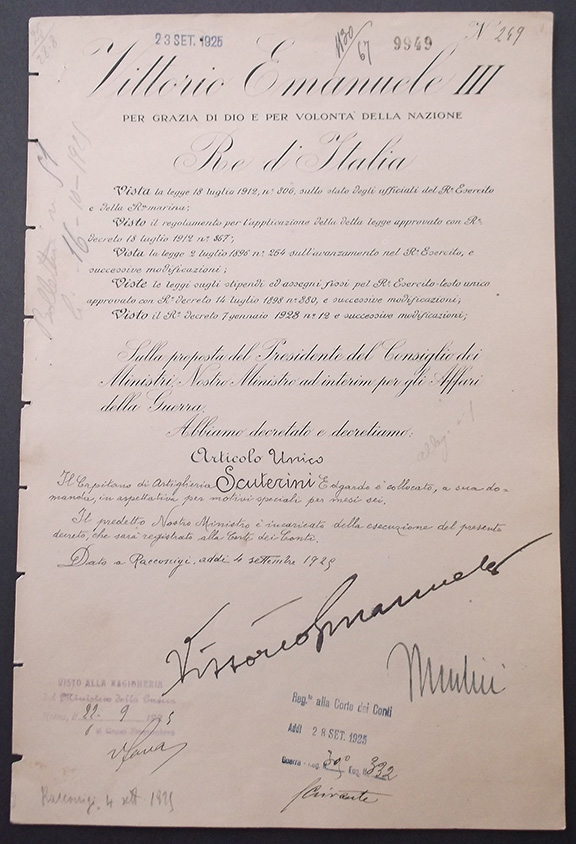 23 SET. 1925
1120
67
9949
N° 249
Vittorio Emanuele III
PER GRAZIA DI DIO E PER VOLONTA' DELLA NAZIONE
Re d'Italia
Vista la legge 18 luglio 1912, n° 806, sullo stato degli ufficiali del R° Esercito
e della Ra marina;
Visto il regolamento per l'applicazione della detta legge approvato con R°
decreto 18 luglio 1912 n° 867;
Vista la legge 2 luglio 1896 n° 254 sull'avanzamento nel R° Esercito, e
successive modificazioni;
Viste le leggi sugli stipendi ed assegni fissi pel R° Esercito-testo unico
approvato con R° decreto 14 luglio 1898 n° 380, e successive modificazioni;
Visto il R° decreto 7 gennaio 1923 n° 12 e successive modificazioni;
Sulla proposta del Presidente del Consiglio dei
Ministri, Nostro Ministro ad interim per gli Affari
della Guerra;
Abbiamo decretato e decretiamo:
Articolo Unico
Il Capitano di Artiglieria Scuterini Edgardo è collocato, a sua do-
manda, in aspettativa per motivi speciali per mesi sei.
Il predetto Nostro Ministro è incaricato della esecuzione del presente
decreto, che sarà registrato alla Corte dei Conti.
Dato a Racconigi, addì 4 settembre 1925
Vittorio Emanuele
VISTO ALLA RAGIONERIA
del Ministero della Guerra
22. 9 1925
Reg.to alla Corte dei Conti
Addì 28 SET. 1925
Guerra - Reg. 390 Fog. 332
Racconigi, 4 sett. 1925
16-10-1925